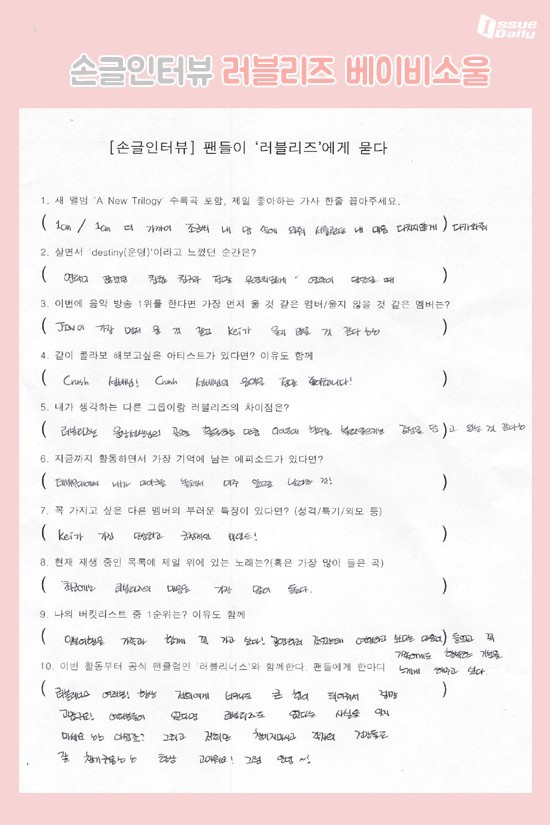 Issue
Daily
손글인터뷰 러블리즈 베이비소울
[손글인터뷰] 팬들이 '러블리즈'에게 묻다
1. 새 앨범 'A New Trilogy' 수록곡 포함, 제일 좋아하는 가사 한줄 꼽아주세요.
( 1cm / 1cm 더 가까이 조금씩 내 맘 속에 와줘 서툴러도 내 마음 다치지않게 ) 다가와줘
2. 살면서 'destiny(운명)'이라고 느꼈던 순간은?
( 연락이 친한 친구와 정말 우연치않게 연락이 닿았을 때 )
3. 이번에 음악 방송 1위를 한다면 가장 먼저 울 것 같은 멤버/울지 않을 것 같은 멤버는?
( JIN이 가장 먼저 울 것 같고 Kei가 울지 않을 것 같다 )
4. 같이 콜라보 해보고싶은 아티스트가 있다면? 이유도 함께
( Crush 선배님! Crush 선배님의 음악을 정말 좋아합니다! )
5. 내가 생각하는 다른 그룹이랑 러블리즈의 차이점은?
( 러블리즈는 윤상선배님의 곡으로 활동하는 만큼 )
6. 지금까지 활동하면서 가장 기억에 남는 에피소드가 있다면?
( 내가 아주 앞으로 것! )
7. 꼭 가지고 싶은 다른 멤버의 부러운 특징이 있다면? (성격/특기/외모 등)
( Kei가 가진 단순하고 긍정적인 마인드! )
8. 현재 재생 중인 목록에 제일 위에 있는 노래는?(혹은 가장 많이 들은 곡)
( 최근에는 러블리즈의 마음을 가장 많이 듣는다. )
9. 나의 버킷리스트 중 1순위는? 이유도 함께
( 가족과 함께 꼭 가고 싶다! ) 들었고 꼭
가족에게도 행복한 기분을
느끼게 해주고 싶다.
10. 이번 활동부터 공식 팬클럼인 '러블리너스'와 함께한다. 팬들에게 한마디
( 러블리너스 여러분! 항상 저희에게 너무나도 큰 힘이 되어줘서 정말
고맙구요! 여러분들이 있다면 러블리즈도 있다는 사실을 잊지
마세요 아셨죠? 그리고 저희만 챙기지마시고 각자의 건강들도
잘 챙겨주길 항상 고마워요! 그럼 안녕~! )